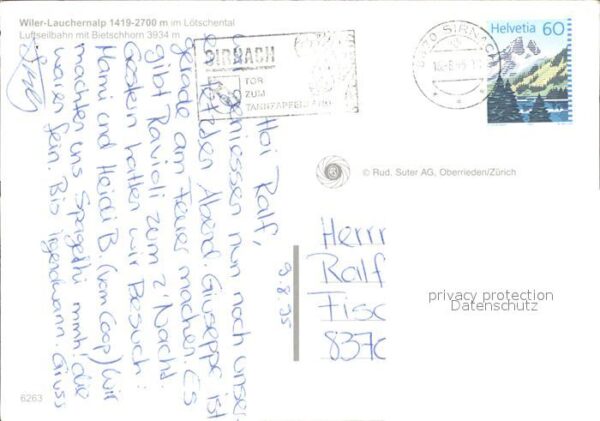 Wiler-Lauchernalp 1419-2700 m im Lötschental
Luftseilbahn mit Bietschhorn 3934 m
SIRNACH
TOR
ZUM
TANNZAPFENLAND
SIRNACH
Helvetia 60
© Rud. Suter AG, Oberrieden/Zürich
Hoi Ralf,
geniessen nun noch unser
den Abend. Giuseppe ist
gerade am Feuer machen. Es
gibt Ravioli zum z'Nacht.
Gestern hatten wir Besuch:
Mami und Heidi B. (vom Coop) Wir
machten uns Spagethi mmh! die
waren fein. Bis irgendwann. Gruss
9.8.95
Herrn
Ralf
Fisc
837
privacy protection
Datenschutz
6263